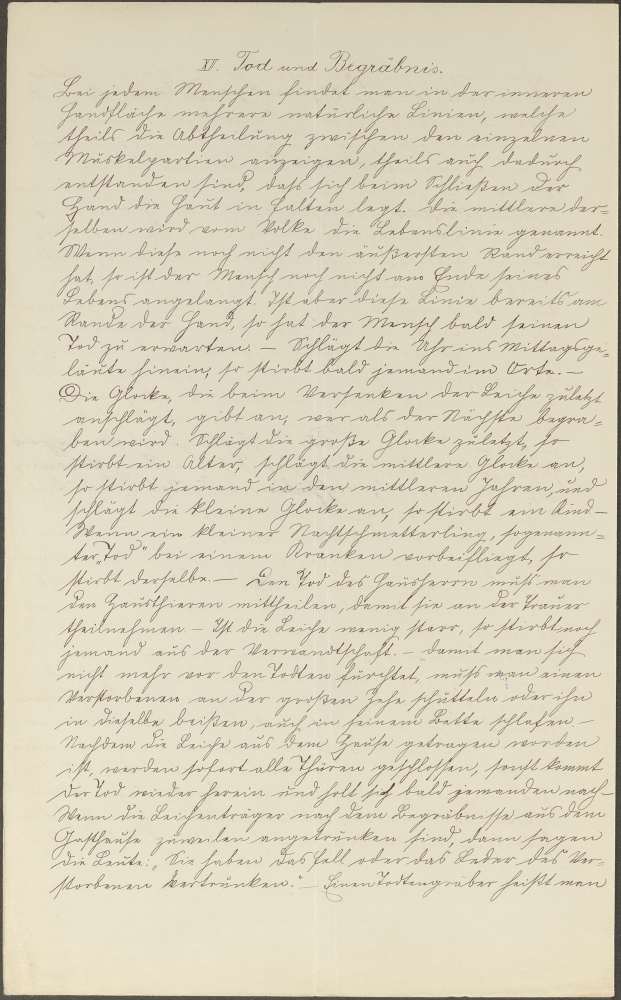 XV. Tod und Begräbnis.
Bei jedem Menschen findet man in der inneren
Handfläche mehrere natürliche Linien, welche
theils die Abtheilung zwischen den einzelnen
Muskelpartien anzeigen, theils auch dadurch
entstanden sind, dass sich beim Schließen der
Hand die Haut in Falten legt. Die mittlere der=
selben wird vom Volke die Lebenslinie genannt.
Wenn diese noch nicht den äußersten Rand erreicht
hat, so ist der Mensch noch nicht am Ende seines
Lebens angelangt. Ist aber diese Linie bereits am
Rande der Hand, so hat der Mensch bald seinen
Tod zu erwarten. — Schlägt die Uhr ins Mittagsge=
läute hinein, so stirbt bald jemand im Orte. —
Die Glocke, die beim Versenken der Leiche zuletzt
anschlägt, gibt an, wer als der Nächste begra=
ben wird. Schlägt die große Glocke zuletzt, so
stirbt ein Alter, schlägt die mittlere Glocke an,
so stirbt jemand in den mittleren Jahren, und
schlägt die kleine Glocke an, so stirbt ein Kind —
Wenn ein kleiner Nachtschmetterling, sogenann=
ter „Tod" bei einem Kranken vorbeifliegt, so
stirbt derselbe. — Den Tod des Hausherrn muss man
den Hausthieren mittheilen, damit sie an der Trauer
theilnehmen. — Ist die Leiche wenig starr, so stirbt noch
jemand aus der Verwandtschaft. — Damit man sich
nicht mehr vor den Todten fürchtet, muss man einen
Verstorbenen an der großen Zehe schütteln oder ihn
in dieselbe beißen, auch in seinem Bette schlafen —
Nachdem die Leiche aus dem Hause getragen worden
ist, werden sofort alle Thüren geschlossen, sonst kommt
der Tod wieder herein und holt sich bald jemanden nach —
Wenn die Leichenträger nach dem Begräbnisse aus dem
Gasthause zuweilen angetrunken sind, dann sagen
die Leute: „Sie haben das Fell oder das Leder des Ver=
storbenen vertrunken." — Einen Todtengräber heißt man